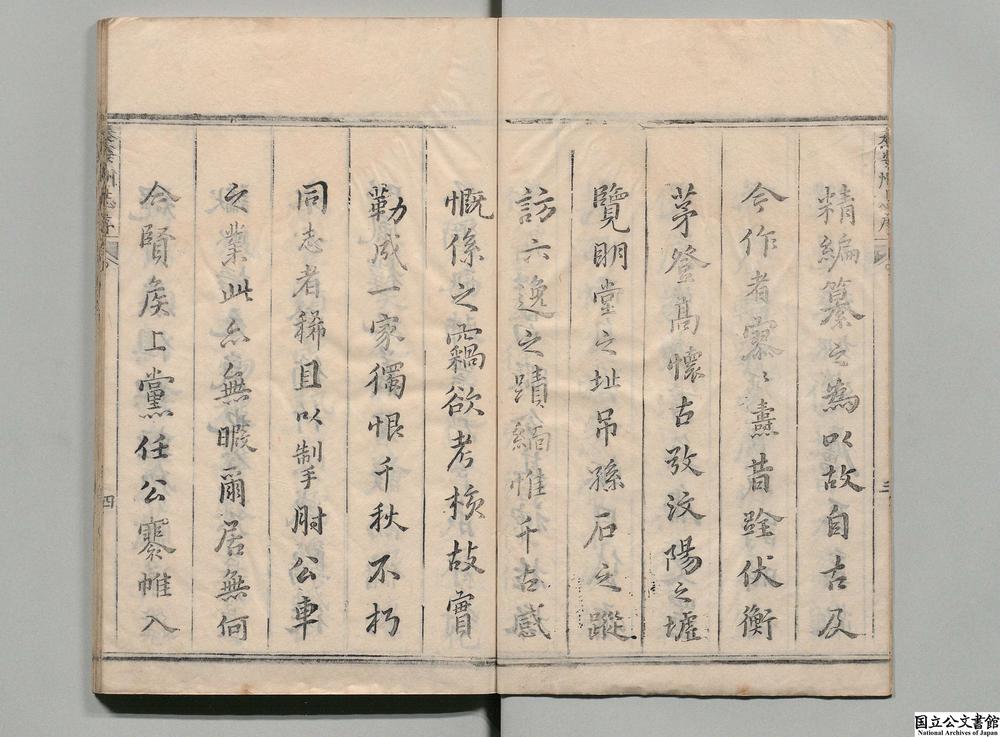 精編纂之為以故自古及
今作者寥〻曩昔銓伏衡
茅登高懷古攷汶陽之墟
覽明堂之址吊孫石之蹤
訪六逸之蹟緬惟千古感
慨係之竊欲考核故實
勒成一家獨恨千秋不朽
同志者稀且以制手肘公車
之業此亦無暇爾居無何
今賢矦上黨任公褰帷入
三
四
国立公文書館
National Archives of Japan